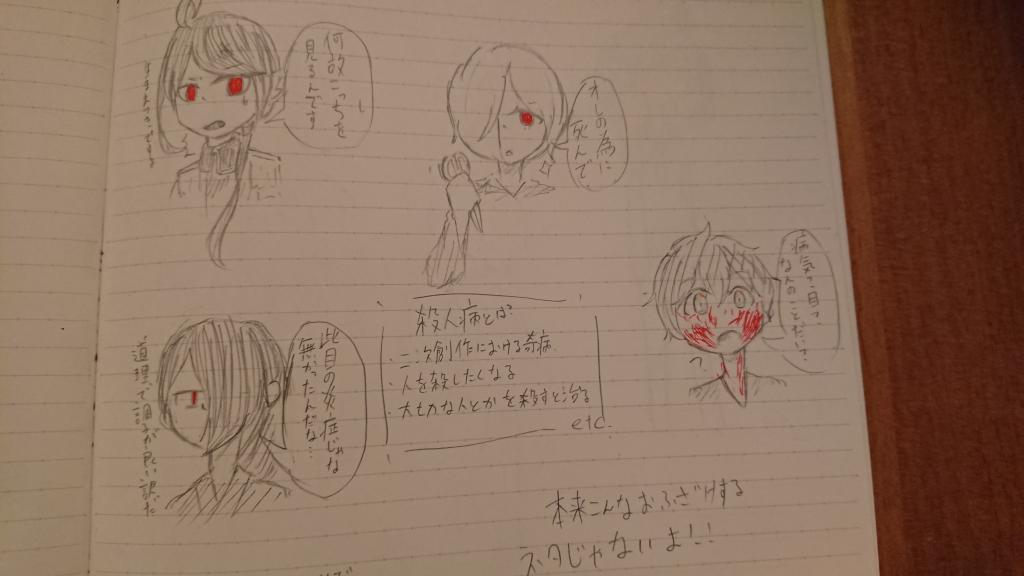 何故こっちを
見るんです
オレの為に
死んで
病気って
此目の炎症じゃな
無かったんだな…
道理で調子が良い訳だ
殺人病とは
・二次創作における奇病
・人を殺したくなる
・大切な人とかを殺すと治る
etc.
本来こんなおふざけする
ネタじゃないよ!!